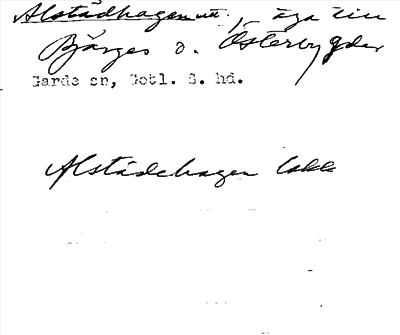 Alstädhagen utt., äga till
Bjärges o. Österbygder
Garde sn, Gotl. S. hd.
Alstädehagen